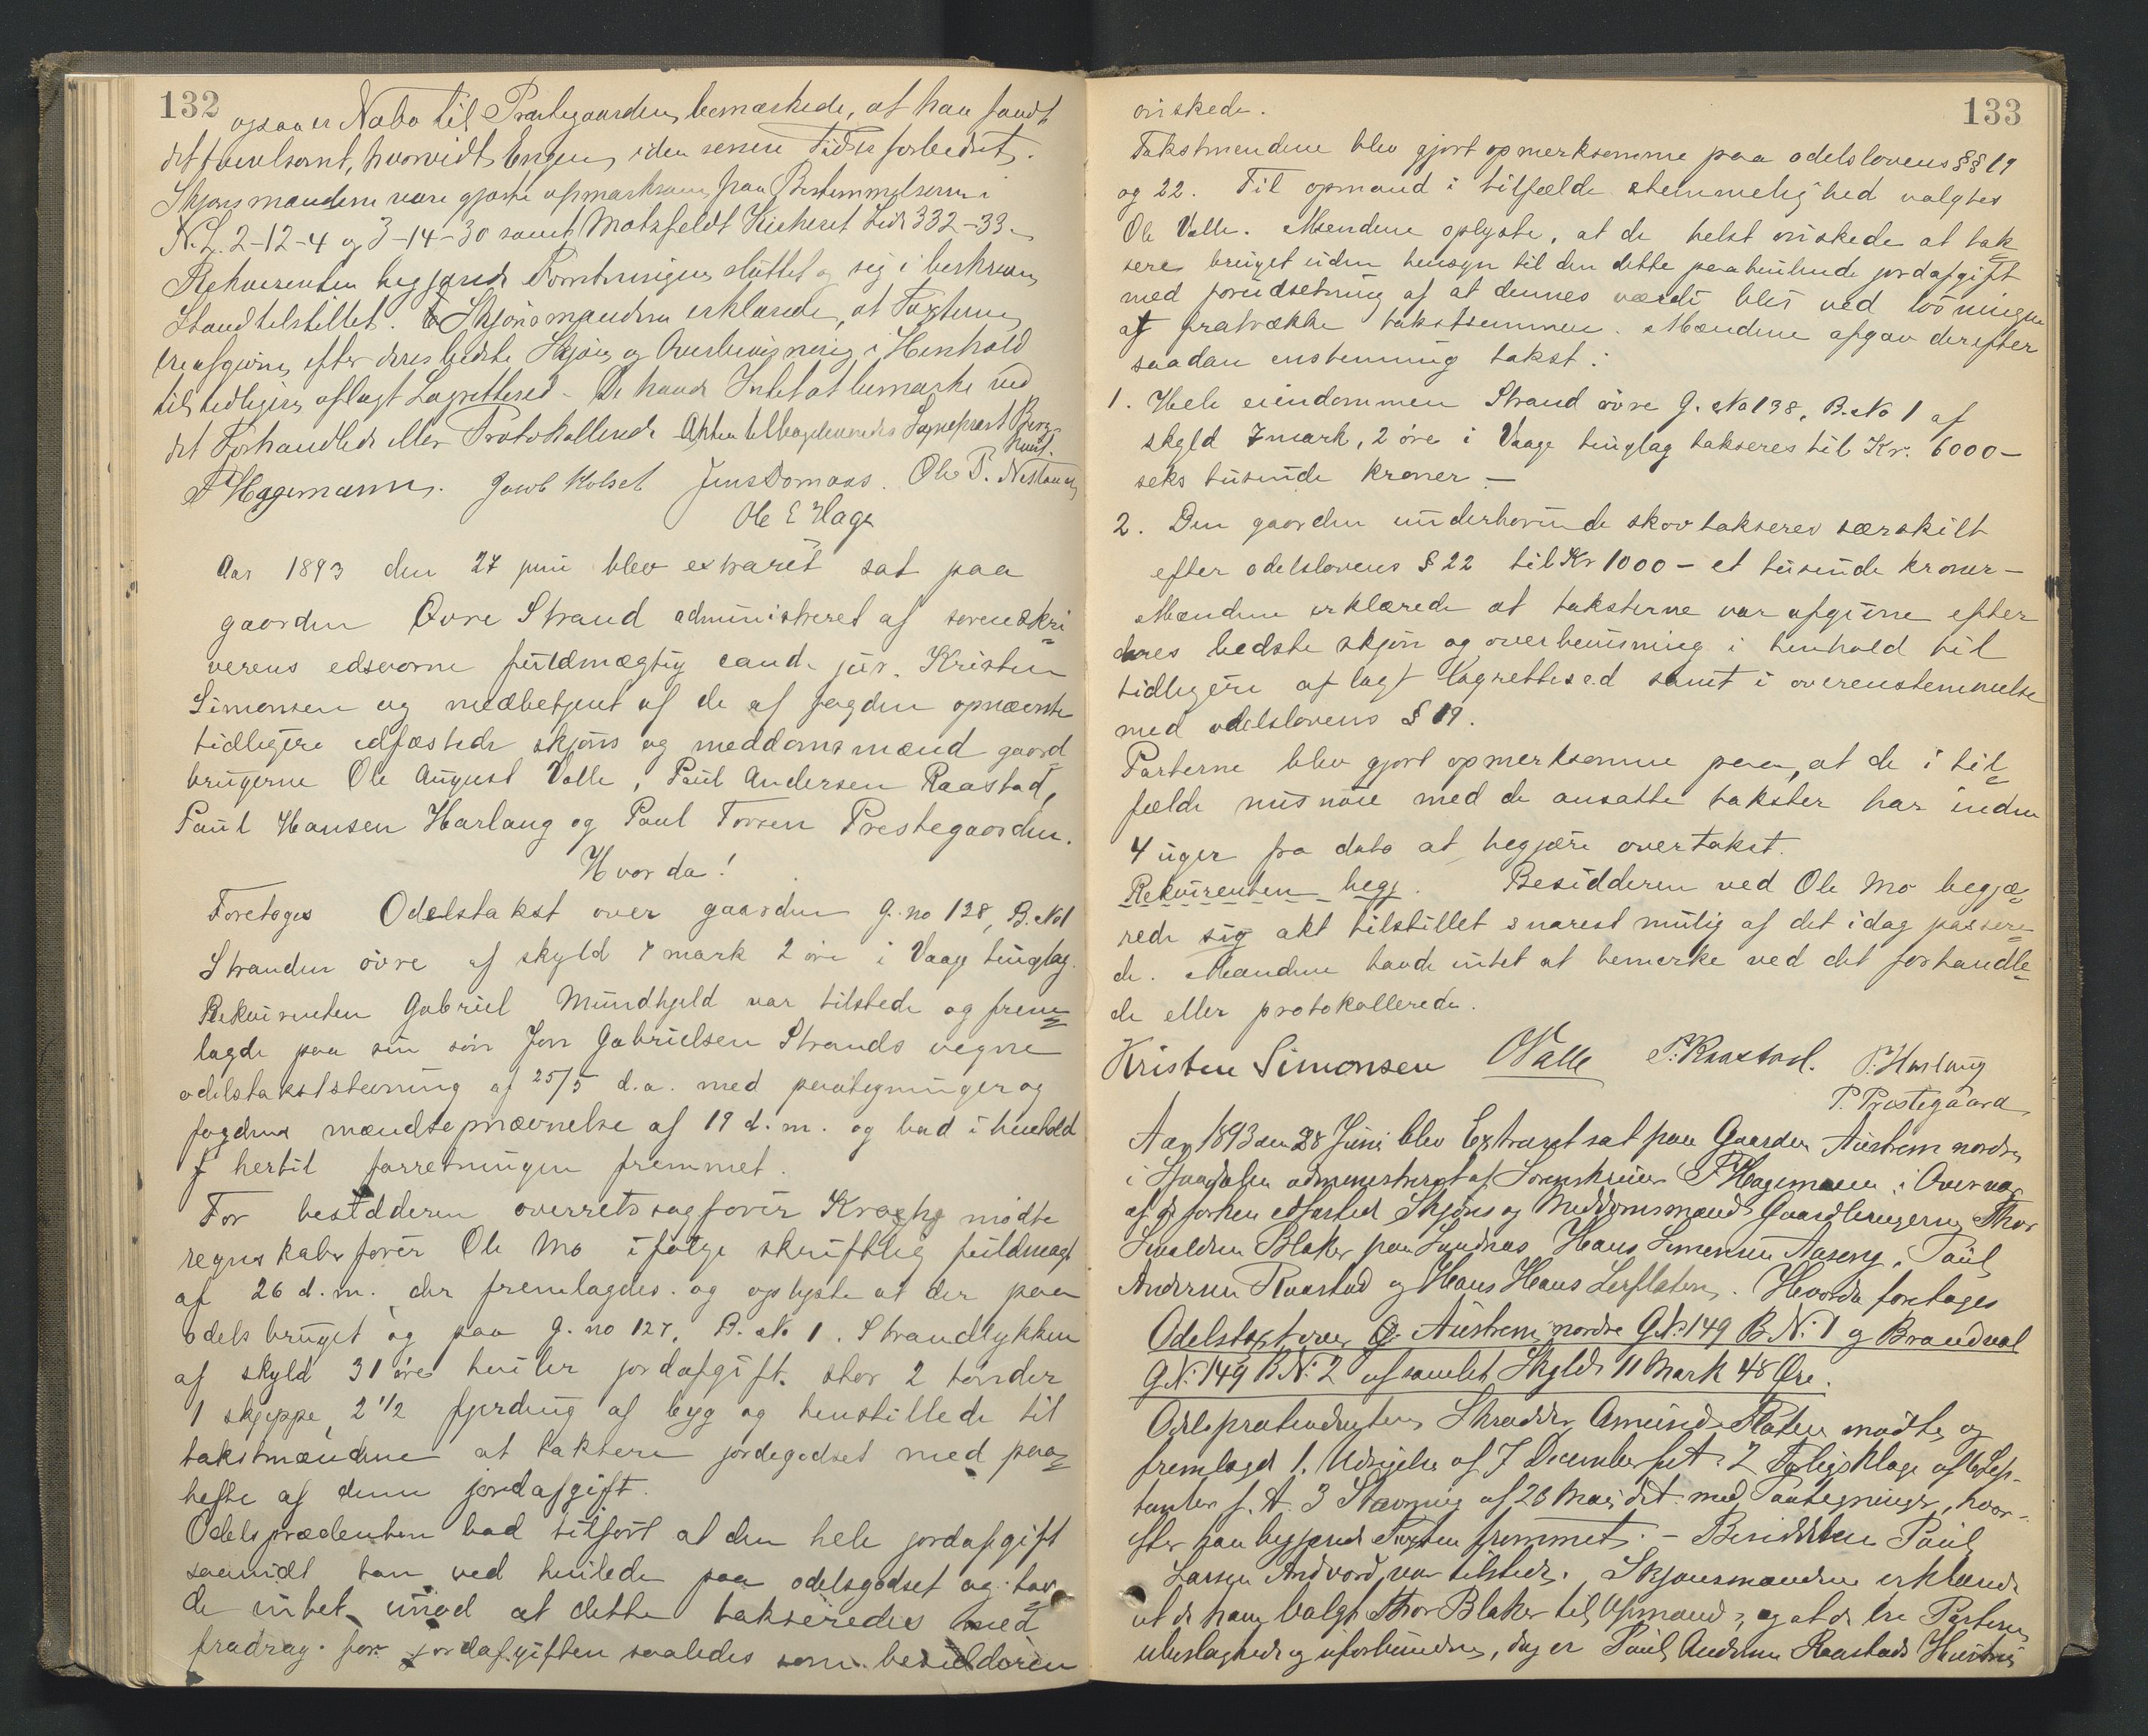 132
ogsaa er Nabo til Præstegaarden, bemærkede, at han fandt
det tvivlsomt, hvorvidt Engen, i den senere Tid er forbedret.
Skjønsmændene vare gjorte opmærksom paa Bestemmelserne i
N. L. 2-12-4 og 3-14-30 samt Motzfeldt Kirkeret Side 332-33.
Rekvirenten begjærede Forretningen sluttet og sig i beskreven
Stand tilstillet. Skjønsmændene erklærede, at Taxterne
ere afgivne efter deres bedste Skjøn og Overbevisning i Henhold
til tidligere aflagt Lagretteed. De havde Intet at bemærke ved
det Forhandlede eller Protokollerede. Akten tilbageleveredes Sogneprest Berg
P Hagemann. Jacob Kolset Jens Domaas. Ole P. Nestande
Ole E Hage
Aar 1893 den 27 juni blev extraret sat paa
gaarden Øvre Strand administreret af sorenskri
verens edsvorne fuldmægtig cand. jur. Kristen
Simonsen og medbetjent af de af fogden opnævnte
tidligere edfæstede skjøns og meddomsmænd gaard
brugerne Ole August Valle, Paul Andersen Raastad,
Paul Hansen Harlaug og Paul Torsen Prestegaarden.
Hvor da!
Foretoges Odelstakst over gaarden g. no 138, B. No 1
Stranden øvre af skyld 7 mark 2 øre i Vaage tinglag.
Rekvirenten Gabriel Mundhjeld var tilstede og frem
lagde paa sin søn Jon Gabrielsen Strands vegne
odelstakststevning af 25/5 d.a. med paategninger og
fogdens mændsopnævnelse af 19 d. m. og bad i henhold
hertil forretningen fremmet.
For besidderen overretssagfører Kraghg mødte
regnskabsfører Ole Mo ifølge skriftlig fuldmagt
af 26 d. m. der fremlagdes. og oplyste at der paa
odelsbruget og paa g. no 127, B. No 1. Strandlykken
af skyld 31 øre hviler jordafgift. stor 2 tønder
1 skjeppe, 2 1/2 fjerding af byg og henstillede til
takstmændene at taksere jordegodset med paa
hefte af denne jordafgift.
Odelsprædenten bad tilført at den hele jordafgift
saavidt han ved hvilede paa odelsgodset og hav
de intet imod at dette takseredes med
fradrag for jordafgiften saaledes som besidderen
133
ønskede.
Takstmendene blev gjort opmerksomme paa odelslovens §§ 19
og 22. Til opmand i tilfælde stemmelighed valgtes
Ole Valle. Mendene oplyste, at de helst ønskede at tak
sere bruget uden hensyn til den dette paahvilende jordafgift
med forudsetning af at dennes værdi blir ved løsningen
at fratrække takstsummen. Mændene afgav derefter
saadan enstemmig takst:
1. Hele eiendommen Strand øvre G. No 138, B. No 1 af
skyld 7 mark, 2 øre i Vaage tinglag takseres til Kr. 6000 –
seks tusende kroner. –
2. Den gaarden underhørende skov takseres særskilt
efter odelslovens § 22 til Kr 1000 – et tusende kroner –
Mændene erklærede at taksterne var afgivne efter
deres bedste skjøn og overbevisning i henhold til
tidligere aflagt lagretteed samt i overenstemmelse
med odelslovens § 19.
Parterne blev gjort opmerksomme paa, at de i til
fælde misnøie med de ansatte takster har inden
4 uger fra dato at begjære overtakst.
Rekvirenten begj. Besidderen ved Ole Mo begjæ
rede sig akt tilstillet snarest mulig af det idag passere
de. Mændene havde intet at bemerke ved det forhandle
de eller protokollerede.
Kristen Simonsen OValle P. Raastad. P. Harlaug
P. Prestegaard
Aar 1893 den 28 Juni blev Extraret sat paa Gaarden Austrem nordre
administreret af Sorenskriver P Hagemann i Overvær
af de forhen edfæsted Skjøns og Meddomsmænd Gaardbrugerne Thor
Blaker paa Sundnes, Hans Simensen Aaseng, Paul
Andersen Raastad og Hans Hans Leirflaten. Hvorda foretoges
Odelstaxt over Austrem nordre GN. 149 BN. 1 og Brandvol
GN. 149 BN. 2 af samlet Skyld 11 Mark 48 Øre.
Odelspretendenten Skrædder Amund Flaten mødte og
fremlagde 1. Udsigelse af 7 December f. A. 2 Forligsklage af 6 Sep-
tember f. A. 3 Stævning af 26 Mai d.A. med Paategninger, hvor-
efter han begjærede Taxten fremmet. – Besidderen Paul
Larsen Andvord var tilstede. Skjønsmændene erklærede
at de have valgt Thor Blaker til Opmand, og at de ere Parterne
ubeslægtede og uforbundne, dog er Paul Andersen Raastads Hustru